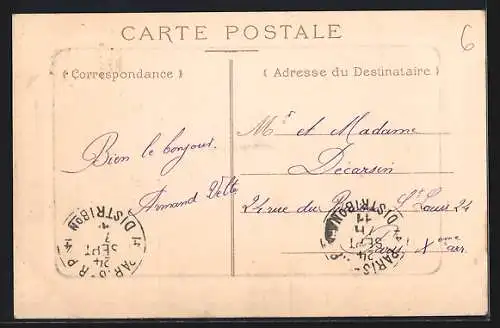 CARTE POSTALE
6
( Correspondance )
( Adresse du Destinataire )
Bien le bonjour.
Armand
Mr et Madame
Décarsin
24 rue du St Louis 24
Paris Xeme arr.
PARIS R.P
DISTRIBON
24
SEPT
PARIS
DISTRIBON
24
SEPT
11